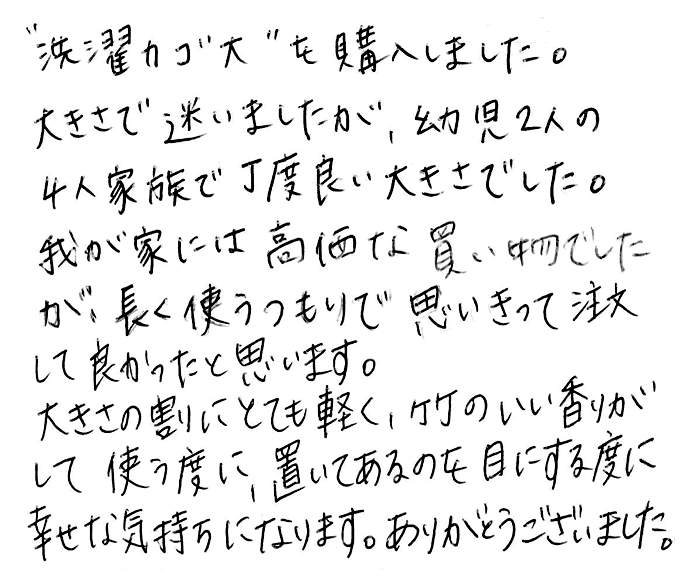 "洗濯カゴ大"を購入しました。
大きさで迷いましたが、幼児2人の
4人家族で丁度良い大きさでした。
我が家には高価な買い物でした
が、長く使うつもりで思いきって注文
して良かったと思います。
大きさの割にとても軽く、竹のいい香りが
して使う度に、置いてあるのを目にする度に
幸せな気持ちになります。ありがとうございました。